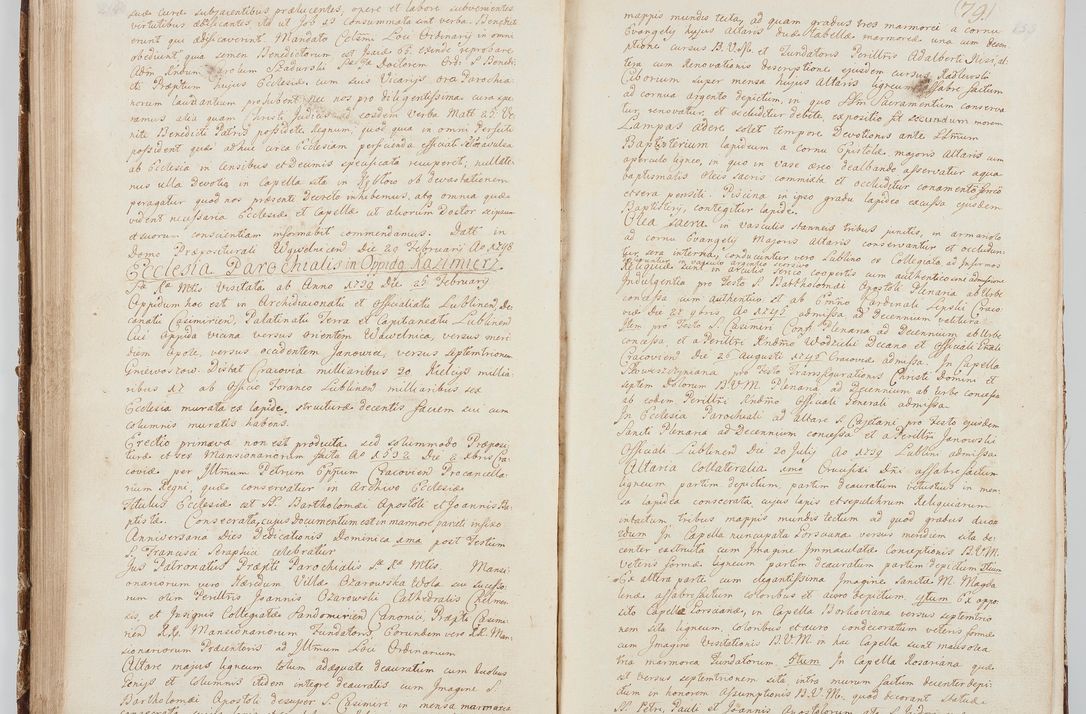 suæ curæ subjacentibus prælucentes, opere et labore subvenientes
virtutibus ædificantes ita ut Job 29 Consummata ent verba. Benedixe
erunt qui ædificaverint. Mandato Celsmi Loci Ordinarij in omni
obediunt, qua semen Benedictorum est Isaiæ 65. exinde reprobare
Adm Rndum Carolum Ssæ Tgiæ Doctorem
et Præptum hujus Ecclesiæ cum suis Vicarijs ora Parochia
norum laudantium præjubent
ramus alia quam Christi Judicis ad eosdem verba Matt 25 Ve
nite Benedicti Patris possidete Regnum, quod qua in omni
possident quasi adhuc circa Ecclesiam perficienda officiat
ab Ecclesia in censibus et Decumis specificata recuperet; nullate
nus ulla Devotio in Capella sita in ob devastationem
peragatur quod nos præsenti Decreto inhibemus, atq omnia quæ
vident necessaria Ecclesiæ et Capellæ ut aliorum Doctor seipsum
et suorum conscientiam informabit commendamus. Datt in
Domo Præpositurali Die 23 February Ao 1748
Ecclesia Parochialis in Oppido Kazimierz
Sæ Ræ Mtis Visitata ab Anno 1739 Die 25 February
Oppidum hoc est in Archidiaconatu et Officialatu Lublinen, De
canatu Casimirien, Palatinatu Terra et Capitaneatu Lublinen
Cui oppida vicina versus orientem Wawelnica, versus meri
diem Opole, versus occidentem Janowiec, versus septemtrionem
Gniewoszow. Distat Cracovia milliaribus 30 Kielcys millia
ribus 17 ab Officio Foraneo Lublinen milliaribus sex
Ecclesia murata ex lapide, structuræ decentis faciem sui cum
columnis muratis habens.
Erectio primæva non est producta sed solummodo Præposi
turæ et sex Mansionariorum facta Ao 1532 Die 2 Xbris Cra
coviæ per Illmum Petrum Eppum Cracovien Procancella
rium Regni, quæ conservatur in Archivo Ecclesiæ
Titulus Ecclesiæ est SS. Bartholomæi Apostoli et Joannis Ba
ptistæ. Consecrata, cujus Documentum est in marmore parieti infixo
Anniversaria Dies Dedicationis Dominica 1ma post Festum
S. Francisci Seraphici celebratur
Jus Patronatus Præpti Parochialis Sæ Ræ Mtis. Mansi
onariorum vero Hæredum Villæ Ozarowska Wola sui
rum olim Perillris Joannis Ozarowski Cathedralis Chelmen
sis, et Insignis Collegiatæ Sandomirien Canonici, Præpti Casimi
rien RR. Mansionariorum Fundatoris, Eorundem vero RR. Man
sionariorum Præsenteris ad Illmum Loci Ordinarium
Altare majus ligneum totum adæquate deauratum cum duobus
et columnis itidem integre deauratis cum Imagine S.
Bartholomæi Apostoli desuper S. Casimiri in mensa marmorea
(79.)
mappis mundis tecta, ad quam gradus tres marmorei a cornu
Evangely hujus Altaris duæ Tabellæ marmoreæ una cum descri
ptione cursus B.V.M. et Fundatoris Perillris Adalberti al
tera cum Renovationis descryptione ejusdem cursus
Ciborium super mensa hujus Altaris ligneum affabre factum
ad cornua argento depictum, in quo SSm Sacramentum conserva
tur, renovatur, et occluditur debite, expositio fit secundum morem
Lampas ardere solet tempore Devotionis ante SSmum
Baptisterium lapideum a cornu Epistolæ majoris Altaris cum
operculo ligneo, in quo in vase æreo dealbando asservatur aqua
baptismalis oleis sacris commixta et occluditur
et sera pensili. Piscina in ipso gradu lapideo excussa ejusdem
Baptistery, contegitur lapide.
Olea Sacra in vasculis stanneis tribus junctis, in armariolo
ad cornu Evangely Majoris Altaris conservantur et occludun
tur sera interna, conducuntur vero Lublino ex Collegiata ad Infirmos
in vasculo argenteo seorsivo
Reliquiæ sunt in arculis serico coopertis cum authenticis sine admissione
Indulgentia pro Festo S. Bartholomæi Apostoli Plenaria ab Urbe
concessa cum authentico et ab Emno Cardinali Lipski Craco
viæ Die 27 9bris Ao 1745 admissa ad Decennium valitura
Item pro Festo S. Casimiri Conf Plenaria ad Decennium ab Urbe
concessa, et a Perillri Rndmo Wodzicki Decano et Officiali Gnali
Cracovien Die 26 Augusti 1745 Cracoviæ admissa. In Capella
pro Festo Transfigurationis Christi Domini et
septem Dolorum B.V.M. Plenaria ad Decennium ab Urbe concessa
ab eodem Perillri Rndmo Officiali Generali admissa.
In Ecclesia Parochiali ad altare S. Cajetani pro Festo ejusdem
Sancti Plenaria ad Decennium concessa et a Perillri Janowski
Officiali Lublinen Die 20 July Ao 1739 Lublini admissa
Altaria Collateralia 1mo Crucifixi Dni affabre factum
ligneum partim depictum, partim deauratum vetustius in men
sa lapidea consecrata cujus lapis et sepulchrum Reliquiarum
intactum, tribus mappis mundis tectum ad quod gradus duo
2dum In Capella nuncupata Porsciana versus meridiem sita de
center extructa cum Imagine Immaculatæ Conceptionis B.V.M.
veteris formæ ligneum partim deauratum partim depictum 3tium
Ex altera parte cum elegantissima Imagine Sanctæ M. Magda
lenæ affabre factum coloribus et auro depictum 4tum Ex oppo
sito Capellæ Porscianæ, in Capella Borkoviana versus septemtrio
nem sita ligneum, coloribus et auro condecoratum veteris formæ
cum Imagine Visitationis B.V.M. in hac Capella sunt mausolea
tria marmorea Fundatorum 5tum In Capella Rosariana quæ
est versus septemtrionem sita intra murum factum decenter depi
ctum in honorem Assumptionis B.V.M. quod decorant Statuæ
SS. Petri, Pauli et Joannis Apostolorum